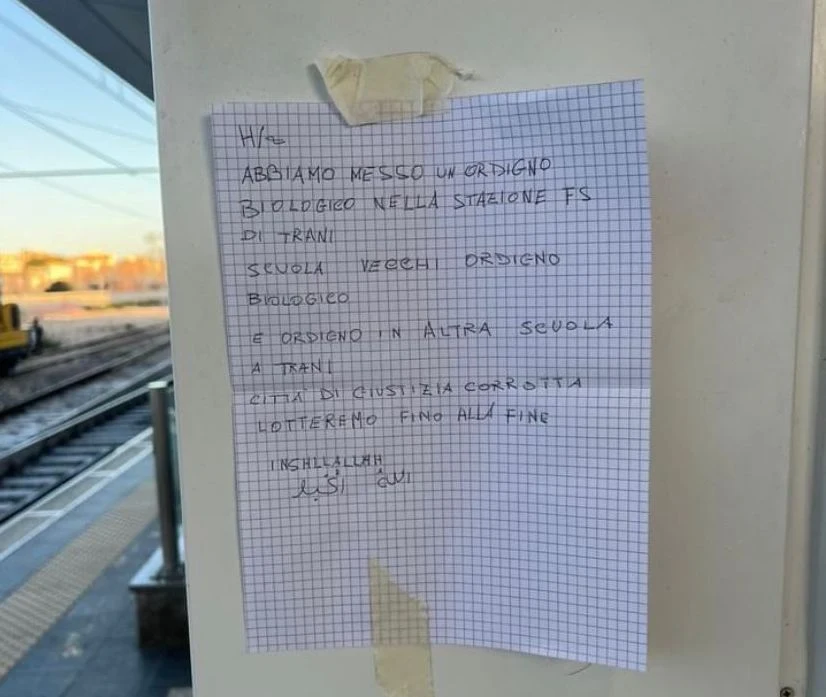 H/~
ABBIAMO MESSO UN ORDIGNO
BIOLOGICO NELLA STAZIONE FS
DI TRANI
SCUOLA VECCHI ORDIGNO
BIOLOGICO
E ORDIGNO IN ALTRA SCUOLA
A TRANI
CITTÀ DI GIUSTIZIA CORROTTA
LOTTEREMO FINO ALLA FINE
INSHLLALLAH